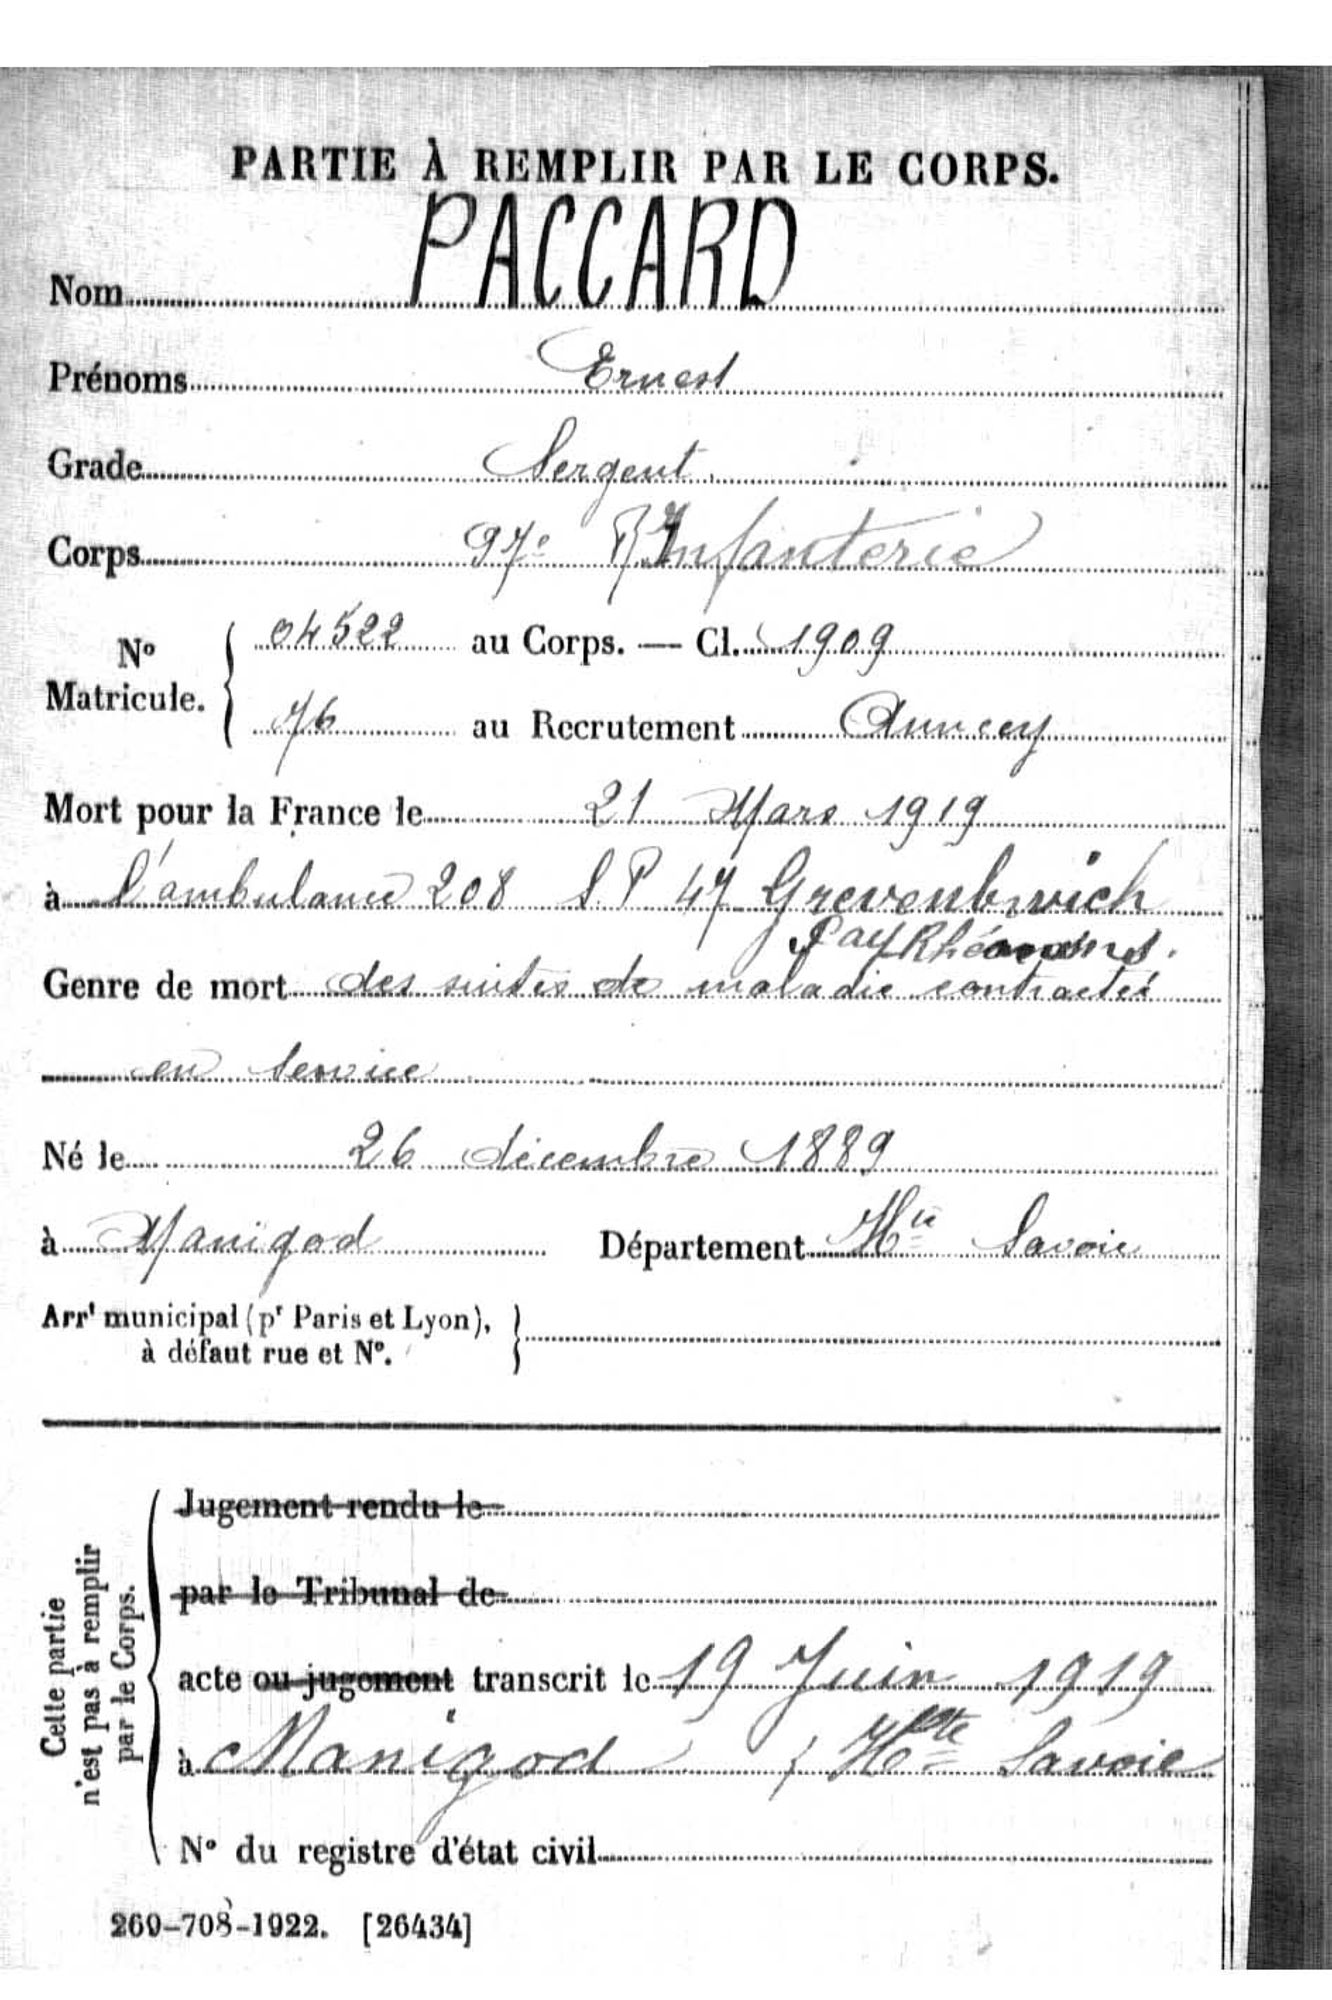 PARTIE À REMPLIR PAR LE CORPS.
Nom PACCARD
Prénoms Ernest
Grade Sergent
Corps 97e R Infanterie
No Matricule. 04522 au Corps. — Cl. 1909
76 au Recrutement Annecy
Mort pour la France le 21 Mars 1919
à l'ambulance 208 S.P 47 Grevenbroich
Pay Rhénans.
Genre de mort des suites de maladie contractée
en service
Né le 26 décembre 1889
à Manigod Département Hte Savoie
Arrt municipal (pr Paris et Lyon),
à défaut rue et No.
Cette partie
n'est pas à remplir
par le Corps.
Jugement rendu le
par le Tribunal de
acte ou jugement transcrit le 19 Juin 1919
à Manigod / Hte Savoie
No du registre d'état civil
269-708-1922. [26434]